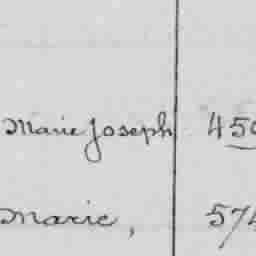 Marie Joseph 459
Marie, 574